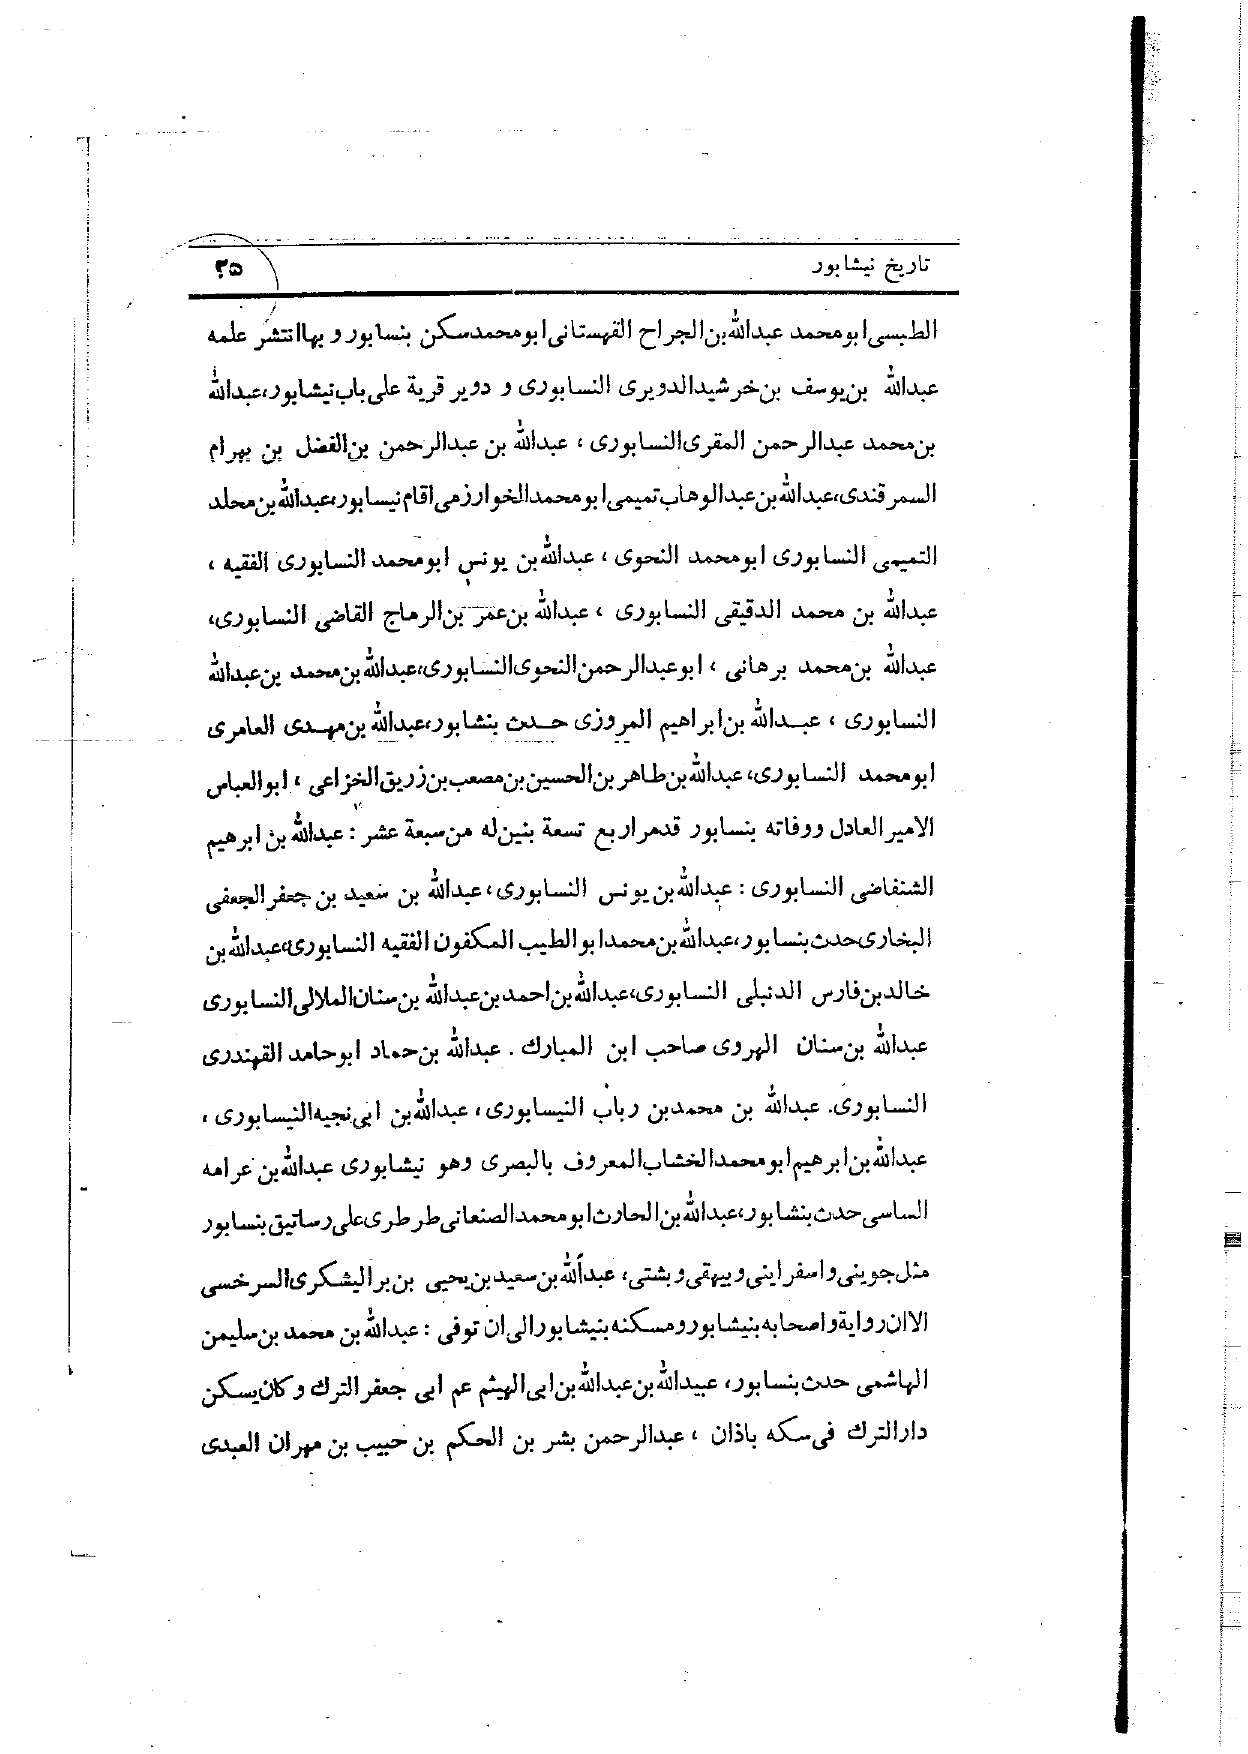 تاریخ نیشابور
۲۵
الطبسی ابومحمد عبدالله بن الجراح القهستانی ابومحمد سکن بنسابور و بها انتشر علمه
عبدالله بن یوسف بن خرشید الدویری النسابوری و دویر قریة علی باب نیشابور، عبدالله
بن محمد عبدالرحمن المقری النسابوری ، عبدالله بن عبدالرحمن بن الفضل بن بهرام
السمرقندی، عبدالله بن عبدالوهاب تمیمی ابومحمد الخوارزمی اقام نیسابور، عبدالله بن مخلد
التمیمی النسابوری ابومحمد النحوی ، عبدالله بن یونس ابومحمد النسابوری الفقیه ،
عبدالله بن محمد الدقیقی النسابوری ، عبدالله بن عمر بن الرماج القاضی النسابوری،
عبدالله بن محمد برهانی ، ابوعبدالرحمن النحوی النسابوری، عبدالله بن محمد بن عبدالله
النسابوری ، عبدالله بن ابراهیم المروزی حدث بنشابور، عبدالله بن مهدی العامری
ابومحمد النسابوری، عبدالله بن طاهر بن الحسین بن مصعب بن زریق الخزاعی ، ابوالعباس
الامیر العادل ووفاته بنسابور قدمر اربع تسعة بنین له من سبعة عشر : عبدالله بن ابرهیم
الشنقاضی النسابوری : عبدالله بن یونس النسابوری، عبدالله بن سعید بن جعفر الجعفی
البخاری حدث بنسابور، عبدالله بن محمد ابوالطیب المکفون الفقیه النسابوری، عبدالله بن
خالد بن فارس الدنبلی النسابوری، عبدالله بن احمد بن عبدالله بن سنان الملالی النسابوری
عبدالله بن سنان الهروی صاحب ابن المبارك . عبدالله بن حماد ابوحامد القهندری
النسابوری. عبدالله بن محمد بن رباب النیسابوری، عبدالله بن ابی نجیه النیسابوری ،
عبدالله بن ابرهیم ابومحمد الخشاب المعروف بالبصری وهو نیشابوری عبدالله بن عرامه
الساسی حدث بنشابور، عبدالله بن الحارث ابومحمد الصنعانی طرطری علی رساتیق بنسابور
مثل جوینی و اسفراینی و بیهقی و بشتی، عبدالله بن سعید بن یحیی بن بر الیشکری السرخسی
الاان روایة و اصحابه بنیشابور و مسکنه بنیشابور الی ان توفی : عبدالله بن محمد بن سلیمن
الهاشمی حدث بنسابور، عبیدالله بن عبدالله بن ابی الهیثم عم ابی جعفر الترك وکان یسکن
دار الترك فی سکه باذان ، عبدالرحمن بشر بن الحکم بن حبیب بن مهران العبدی